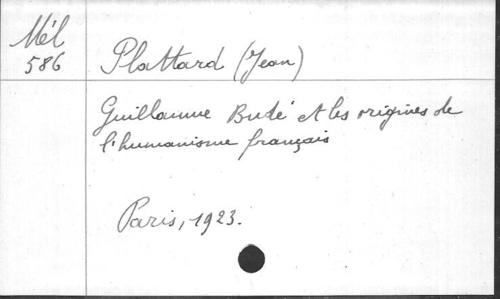 Mél
586
Plattard (Jean)
Guillaume Budé et les origines de
l'humanisme français
Paris, 1923.